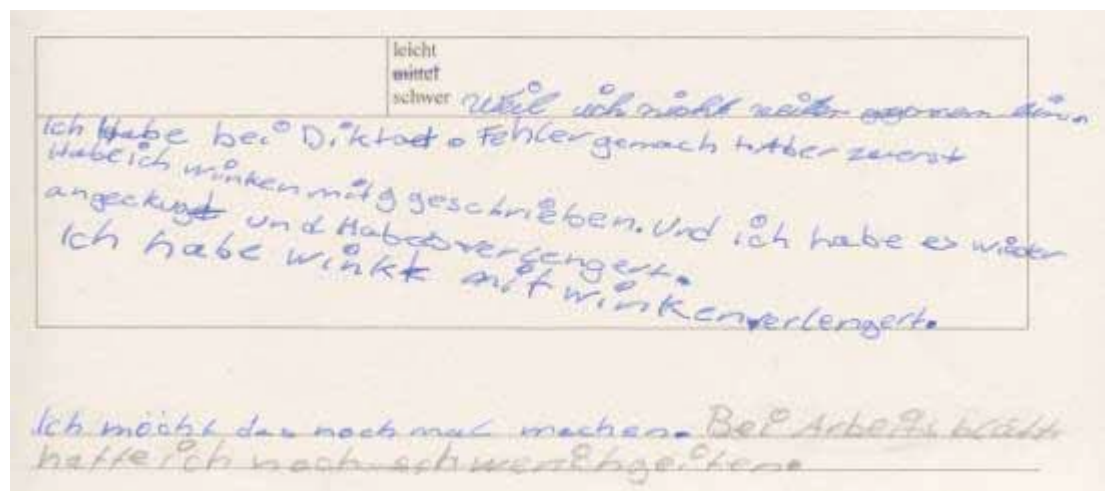 leicht
mittel
schwer weil ich nicht weiter
Ich Habe bei Diktat o Fehler gemach t. Aber zuerst
Habe ich winken mit g geschrieben. Und ich habe es wieder
angeckugt und Habe es verlengert.
Ich habe winkt mit winken verlengert.
Ich möcht das noch mal machen. Bei Arbeits blätt
hatte ich noch schwerichgeiten.